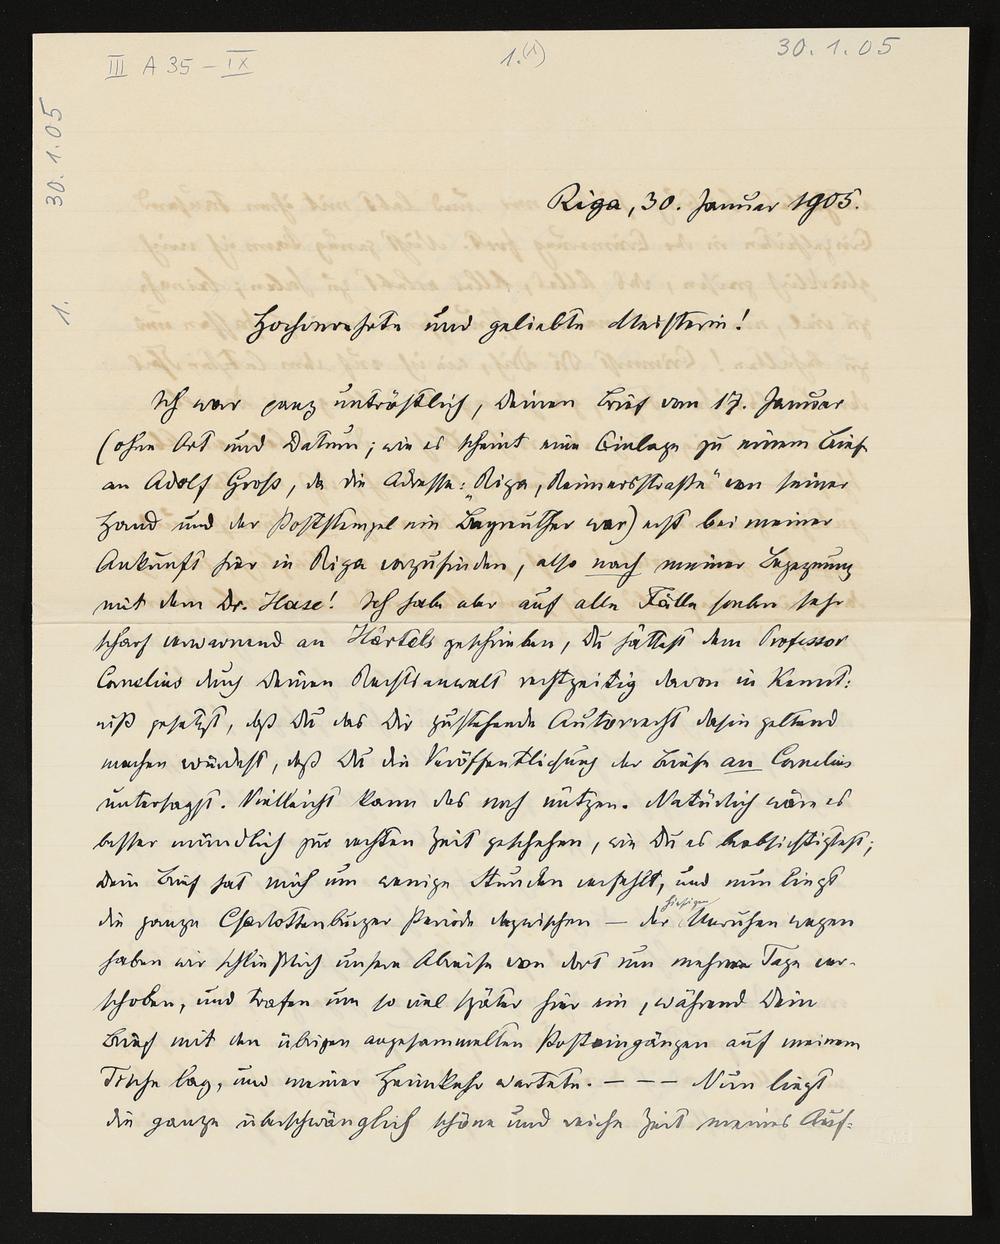 III A 35 – IX
1.(1)
30.1.05
30.1.05
1.
Riga, 30. Januar 1905.
Hochverehrte und geliebte Meisterin!
Ich war ganz untröstlich, Deinen Brief vom 17. Januar
(ohne Ort und Datum; wie es scheint eine Einlage zu einem Brief
an Adolf Groß, da die Adresse: „Riga, Reimersstraße" von seiner
Hand und der Poststempel ein Bayreuther war) erst bei meiner
Ankunft hier in Riga vorzufinden, also nach meiner Begegnung
mit dem Dr. Hase! Ich habe aber auf alle Fälle soeben sehr
scharf verwarnend an Härtels geschrieben, Du hättest dem Professor
Cornelius durch Deinen Rechtsanwalt rechtzeitig davon in Kennt:
niß gesetzt, daß Du das Dir zustehende Autorrecht dahin geltend
machen würdest, daß Du die Veröffentlichung der Briefe an Cornelius
untersagst. Vielleicht kann das noch nützen. Natürlich wäre es
besser mündlich zur rechten Zeit geschehen, wie Du es beabsichtigtest;
Dein Brief hat mich um wenige Stunden verfehlt, und nun liegt
die ganze Charlottenburger Periode dazwischen — der hiesigen Unruhen wegen
haben wir schließlich unsere Abreise von dort um mehrere Tage ver-
schoben, und trafen um so viel später hier ein, während Dein
Brief mit den übrigen angesammelten Posteingängen auf meinem
Tische lag, und meiner Heimkehr wartete. — — — Nun liegt
die ganze überschwänglich schöne und reiche Zeit meines Auf: